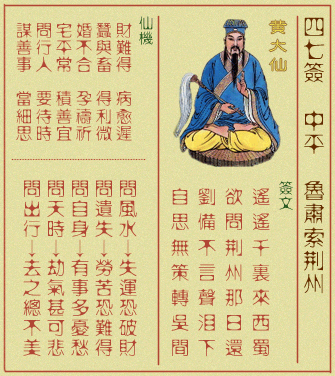 四七簽 中平 魯肅索荊州
黄大仙
簽文
遙遙千裏來西蜀
欲問荊州那日還
劉備不言聲泪下
自思無策轉吳間
仙機
財難得 病愈遲
蠶與畜 得利微
婚不合 孕禱祈
宅平常 積善宜
問行人 要待時
謀善事 當細思
問風水→失運恐破財
問遺失→勞苦恐難得
問自身→有事多憂愁
問天時→劫氣甚可悲
問出行→去之總不美